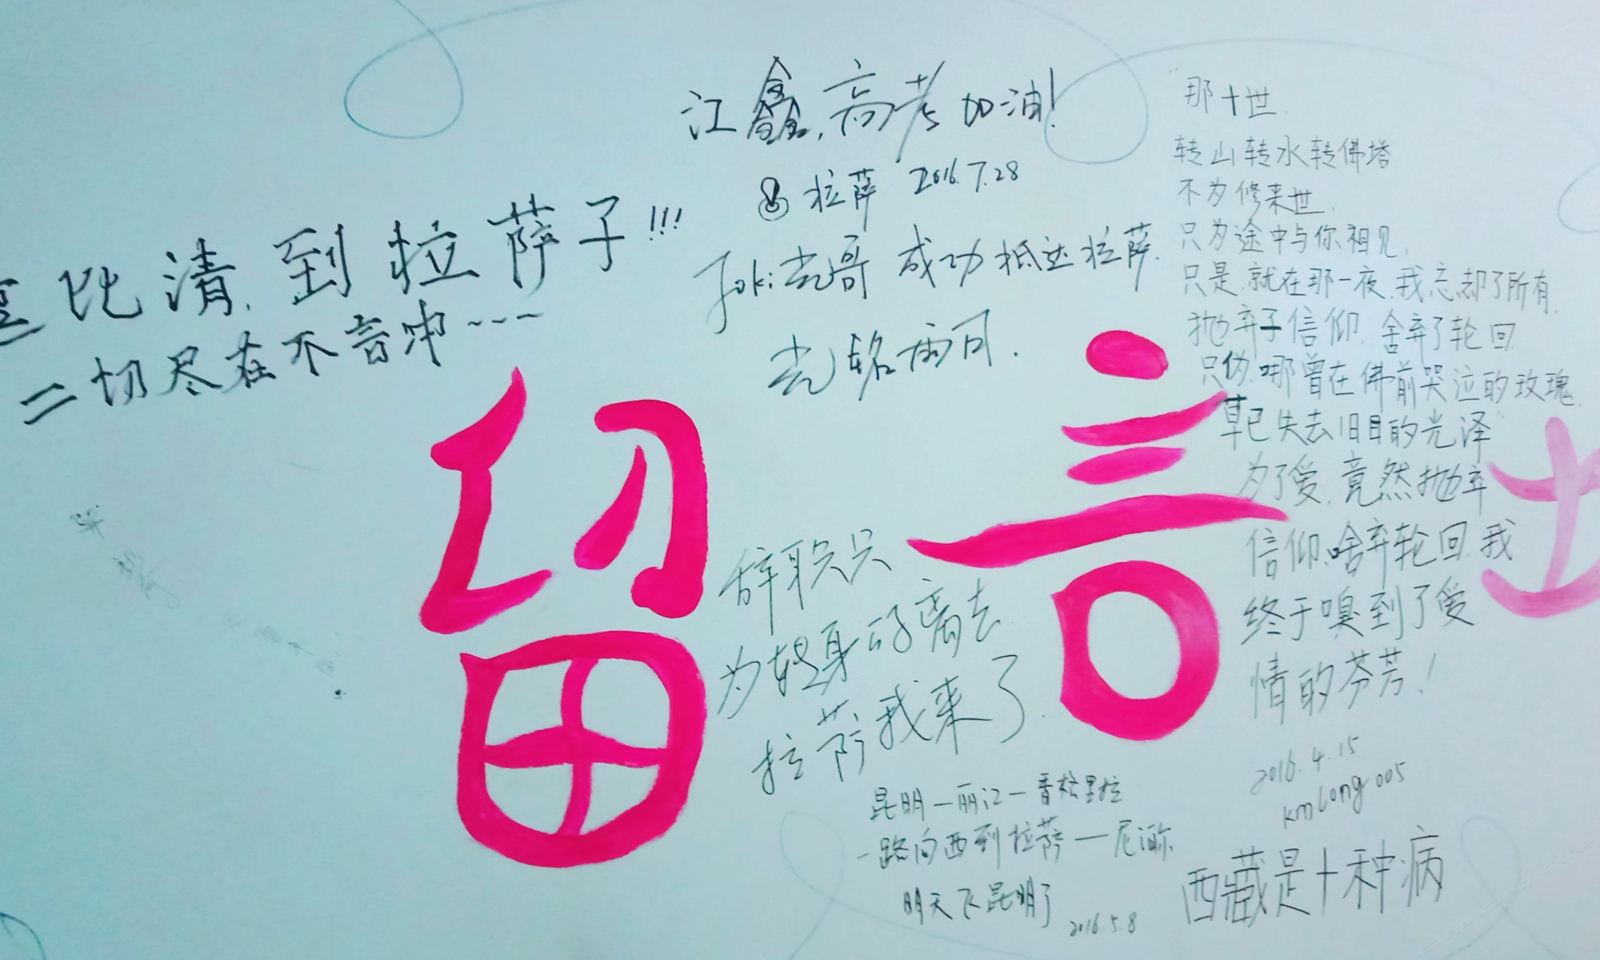 比清.到拉萨子!!!
一切尽在不言中~~~
江鑫,高考加油!
拉萨 2016.7.28
Joki 光哥 成功抵达拉萨.
留言
那十世.
转山转水转佛塔
不为修来世.
只为途中与你相见.
只是.就在那一夜.我忘却了所有.
抛弃了信仰.舍弃了轮回
只为.哪曾在佛前哭泣的玫瑰.
早已失去旧日的光泽
为了爱.竟然抛弃
信仰.啥弃轮回.我
终于嗅到了爱
情的芬芳!
2016.4.15
kmlong005
辞职只
为转身的离去
拉萨我来了.
昆明—丽江—香格里拉
一路向西到拉萨—尼泊尔
明天飞昆明了
2016.5.8
西藏是十种病